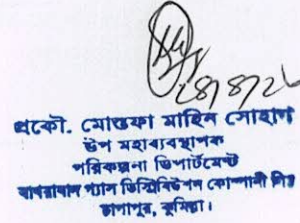 ২৪/৪/২৮
প্রকৌ. মোস্তফা মাহিন সোহাগ
উপ মহাব্যবস্থাপক
পরিকল্পনা ডিপার্টমেন্ট
বাখরাবাদ গ্যাস ডিস্ট্রিবিউশন কোম্পানী লিঃ
চাপাপুর, কুমিল্লা।